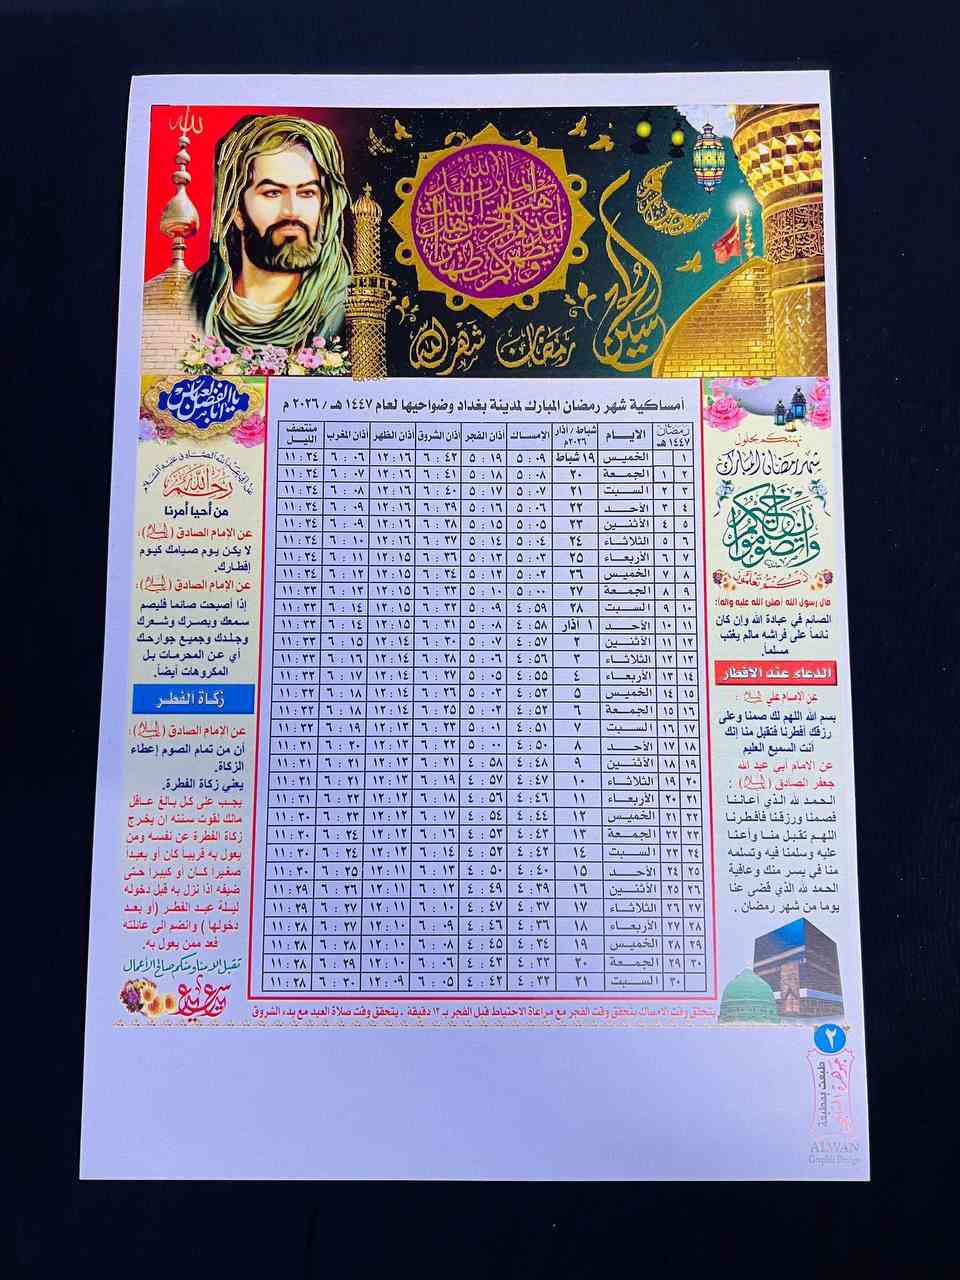 الله
شهر الله
رمضان
الحسين
أمساكية شهر رمضان المبارك لمدينة بغداد وضواحيها لعام ١٤٤٧ هـ / ٢٠٢٦ م
رمضان ١٤٤٧ هـ الايـام شباط / آذار ٢٠٢٦م الإمساك أذان الفجر أذان الشروق أذان الظهر أذان المغرب منتصف الليل
١ الخميس ١٩ شباط ٥ : ٠٩ ٥ : ١٩ ٦ : ٤٢ ١٢ : ١٦ ٦ : ٠٦ ١١ : ٣٤
٢ ١ الجمعة ٢٠ ٥ : ٠٨ ٥ : ١٨ ٦ : ٤١ ١٢ : ١٦ ٦ : ٠٧ ١١ : ٣٤
٣ ٢ السبت ٢١ ٥ : ٠٧ ٥ : ١٧ ٦ : ٤٠ ١٢ : ١٦ ٦ : ٠٨ ١١ : ٣٤
٤ ٣ الأحد ٢٢ ٥ : ٠٦ ٥ : ١٦ ٦ : ٣٩ ١٢ : ١٦ ٦ : ٠٩ ١١ : ٣٤
٥ ٤ الأثنين ٢٣ ٥ : ٠٥ ٥ : ١٥ ٦ : ٣٨ ١٢ : ١٦ ٦ : ٠٩ ١١ : ٣٤
٦ ٥ الثلاثاء ٢٤ ٥ : ٠٤ ٥ : ١٤ ٦ : ٣٧ ١٢ : ١٦ ٦ : ١٠ ١١ : ٣٤
٧ ٦ الأربعاء ٢٥ ٥ : ٠٣ ٥ : ١٣ ٦ : ٣٦ ١٢ : ١٥ ٦ : ١١ ١١ : ٣٤
٨ ٧ الخميس ٢٦ ٥ : ٠٢ ٥ : ١٢ ٦ : ٣٤ ١٢ : ١٥ ٦ : ١٢ ١١ : ٣٤
٩ ٨ الجمعة ٢٧ ٥ : ٠٠ ٥ : ١٠ ٦ : ٣٣ ١٢ : ١٥ ٦ : ١٣ ١١ : ٣٣
١٠ ٩ السبت ٢٨ ٤ : ٥٩ ٥ : ٠٩ ٦ : ٣٢ ١٢ : ١٥ ٦ : ١٤ ١١ : ٣٣
١١ ١٠ الأحد ١ آذار ٤ : ٥٨ ٥ : ٠٨ ٦ : ٣١ ١٢ : ١٥ ٦ : ١٤ ١١ : ٣٣
١٢ ١١ الأثنين ٢ ٤ : ٥٧ ٥ : ٠٧ ٦ : ٣٠ ١٢ : ١٤ ٦ : ١٥ ١١ : ٣٣
١٣ ١٢ الثلاثاء ٣ ٤ : ٥٦ ٥ : ٠٦ ٦ : ٢٨ ١٢ : ١٤ ٦ : ١٦ ١١ : ٣٣
١٤ ١٣ الأربعاء ٤ ٤ : ٥٥ ٥ : ٠٥ ٦ : ٢٧ ١٢ : ١٤ ٦ : ١٧ ١١ : ٣٢
١٥ ١٤ الخميس ٥ ٤ : ٥٣ ٥ : ٠٣ ٦ : ٢٦ ١٢ : ١٤ ٦ : ١٨ ١١ : ٣٢
١٦ ١٥ الجمعة ٦ ٤ : ٥٢ ٥ : ٠٢ ٦ : ٢٥ ١٢ : ١٣ ٦ : ١٨ ١١ : ٣٢
١٧ ١٦ السبت ٧ ٤ : ٥١ ٥ : ٠١ ٦ : ٢٣ ١٢ : ١٣ ٦ : ١٩ ١١ : ٣٢
١٨ ١٧ الأحد ٨ ٤ : ٥٠ ٥ : ٠٠ ٦ : ٢٢ ١٢ : ١٣ ٦ : ٢٠ ١١ : ٣١
١٩ ١٨ الأثنين ٩ ٤ : ٤٨ ٤ : ٥٨ ٦ : ٢١ ١٢ : ١٣ ٦ : ٢١ ١١ : ٣١
٢٠ ١٩ الثلاثاء ١٠ ٤ : ٤٧ ٤ : ٥٧ ٦ : ١٩ ١٢ : ١٢ ٦ : ٢١ ١١ : ٣١
٢١ ٢٠ الأربعاء ١١ ٤ : ٤٦ ٤ : ٥٦ ٦ : ١٨ ١٢ : ١٢ ٦ : ٢٢ ١١ : ٣١
٢٢ ٢١ الخميس ١٢ ٤ : ٤٤ ٤ : ٥٤ ٦ : ١٧ ١٢ : ١٢ ٦ : ٢٣ ١١ : ٣٠
٢٣ ٢٢ الجمعة ١٣ ٤ : ٤٣ ٤ : ٥٣ ٦ : ١٦ ١٢ : ١٢ ٦ : ٢٤ ١١ : ٣٠
٢٤ ٢٣ السبت ١٤ ٤ : ٤٢ ٤ : ٥٢ ٦ : ١٤ ١٢ : ١٢ ٦ : ٢٤ ١١ : ٣٠
٢٥ ٢٤ الأحد ١٥ ٤ : ٤٠ ٤ : ٥٠ ٦ : ١٣ ١٢ : ١١ ٦ : ٢٥ ١١ : ٣٠
٢٦ ٢٥ الأثنين ١٦ ٤ : ٣٩ ٤ : ٤٩ ٦ : ١٢ ١٢ : ١١ ٦ : ٢٦ ١١ : ٢٩
٢٧ ٢٦ الثلاثاء ١٧ ٤ : ٣٧ ٤ : ٤٧ ٦ : ١٠ ١٢ : ١١ ٦ : ٢٧ ١١ : ٢٩
٢٨ ٢٧ الأربعاء ١٨ ٤ : ٣٦ ٤ : ٤٦ ٦ : ٠٩ ١٢ : ١٠ ٦ : ٢٧ ١١ : ٢٨
٢٩ ٢٨ الخميس ١٩ ٤ : ٣٤ ٤ : ٤٥ ٦ : ٠٨ ١٢ : ١٠ ٦ : ٢٨ ١١ : ٢٨
٣٠ ٢٩ الجمعة ٢٠ ٤ : ٣٣ ٤ : ٤٣ ٦ : ٠٦ ١٢ : ١٠ ٦ : ٢٩ ١١ : ٢٨
٣٠ السبت ٢١ ٤ : ٣٢ ٤ : ٤٢ ٦ : ٠٥ ١٢ : ٠٩ ٦ : ٣٠ ١١ : ٢٨
يتحقق وقت الامساك بتحقق وقت الفجر مع مراعاة الاحتياط قبل الفجر بـ ١٢ دقيقة . يتحقق وقت صلاة العيد مع بدء الشروق
نهنئكم بحلول
شهر رمضان المبارك
وان تصوموا خير لكم
ان كنتم تعلمون
قال رسول الله (صلى الله عليه واله):
الصائم في عبادة الله وإن كان
نائماً على فراشه مالم يغتب
مسلماً.
الدعاء عند الافطار
عن الإمام علي (عليه السلام):
بسم الله اللهم لك صمنا وعلى
رزقك أفطرنا فتقبل منا إنك
أنت السميع العليم
عن الإمام أبي عبد الله
جعفر الصادق (عليه السلام) :
الحمد لله الذي أعاننا
فصمنا ورزقنا فأفطرنا
اللهم تقبل منا وأعنا
عليه وسلمنا فيه وتسلمه
منا في يسر منك وعافية
الحمد لله الذي قضى عنا
يوما من شهر رمضان .
يا أبا الفضل العباس
عن الإمام الصادق عليه السلام
رحم الله
من أحيا أمرنا
عن الإمام الصادق (عليه السلام):
لا يكن يوم صيامك كيوم
إفطارك.
عن الإمام الصادق (عليه السلام):
إذا أصبحت صائما فليصم
سمعك وبصرك وشعرك
وجلدك وجميع جوارحك
أي عن المحرمات بل
المكروهات أيضاً.
زكاة الفطر
عن الإمام الصادق (عليه السلام):
أن من تمام الصوم إعطاء
الزكاة.
يعني زكاة الفطرة.
يجب على كل بالغ عاقل
مالك لقوت سنته ان يخرج
زكاة الفطرة عن نفسه ومن
يعول به قريباً كان أو بعيداً
صغيرا كان أو كبيراً حتى
ضيفه اذا نزل به قبل دخوله
ليلة عيد الفطر (أو بعد
دخولها ) وانضم الى عائلته
فعد ممن يعول به.
تقبل الله منا ومنكم صالح الأعمال
عيد سعيد
٢
طبعت بمطبعة
ALWAN
Graphic Design